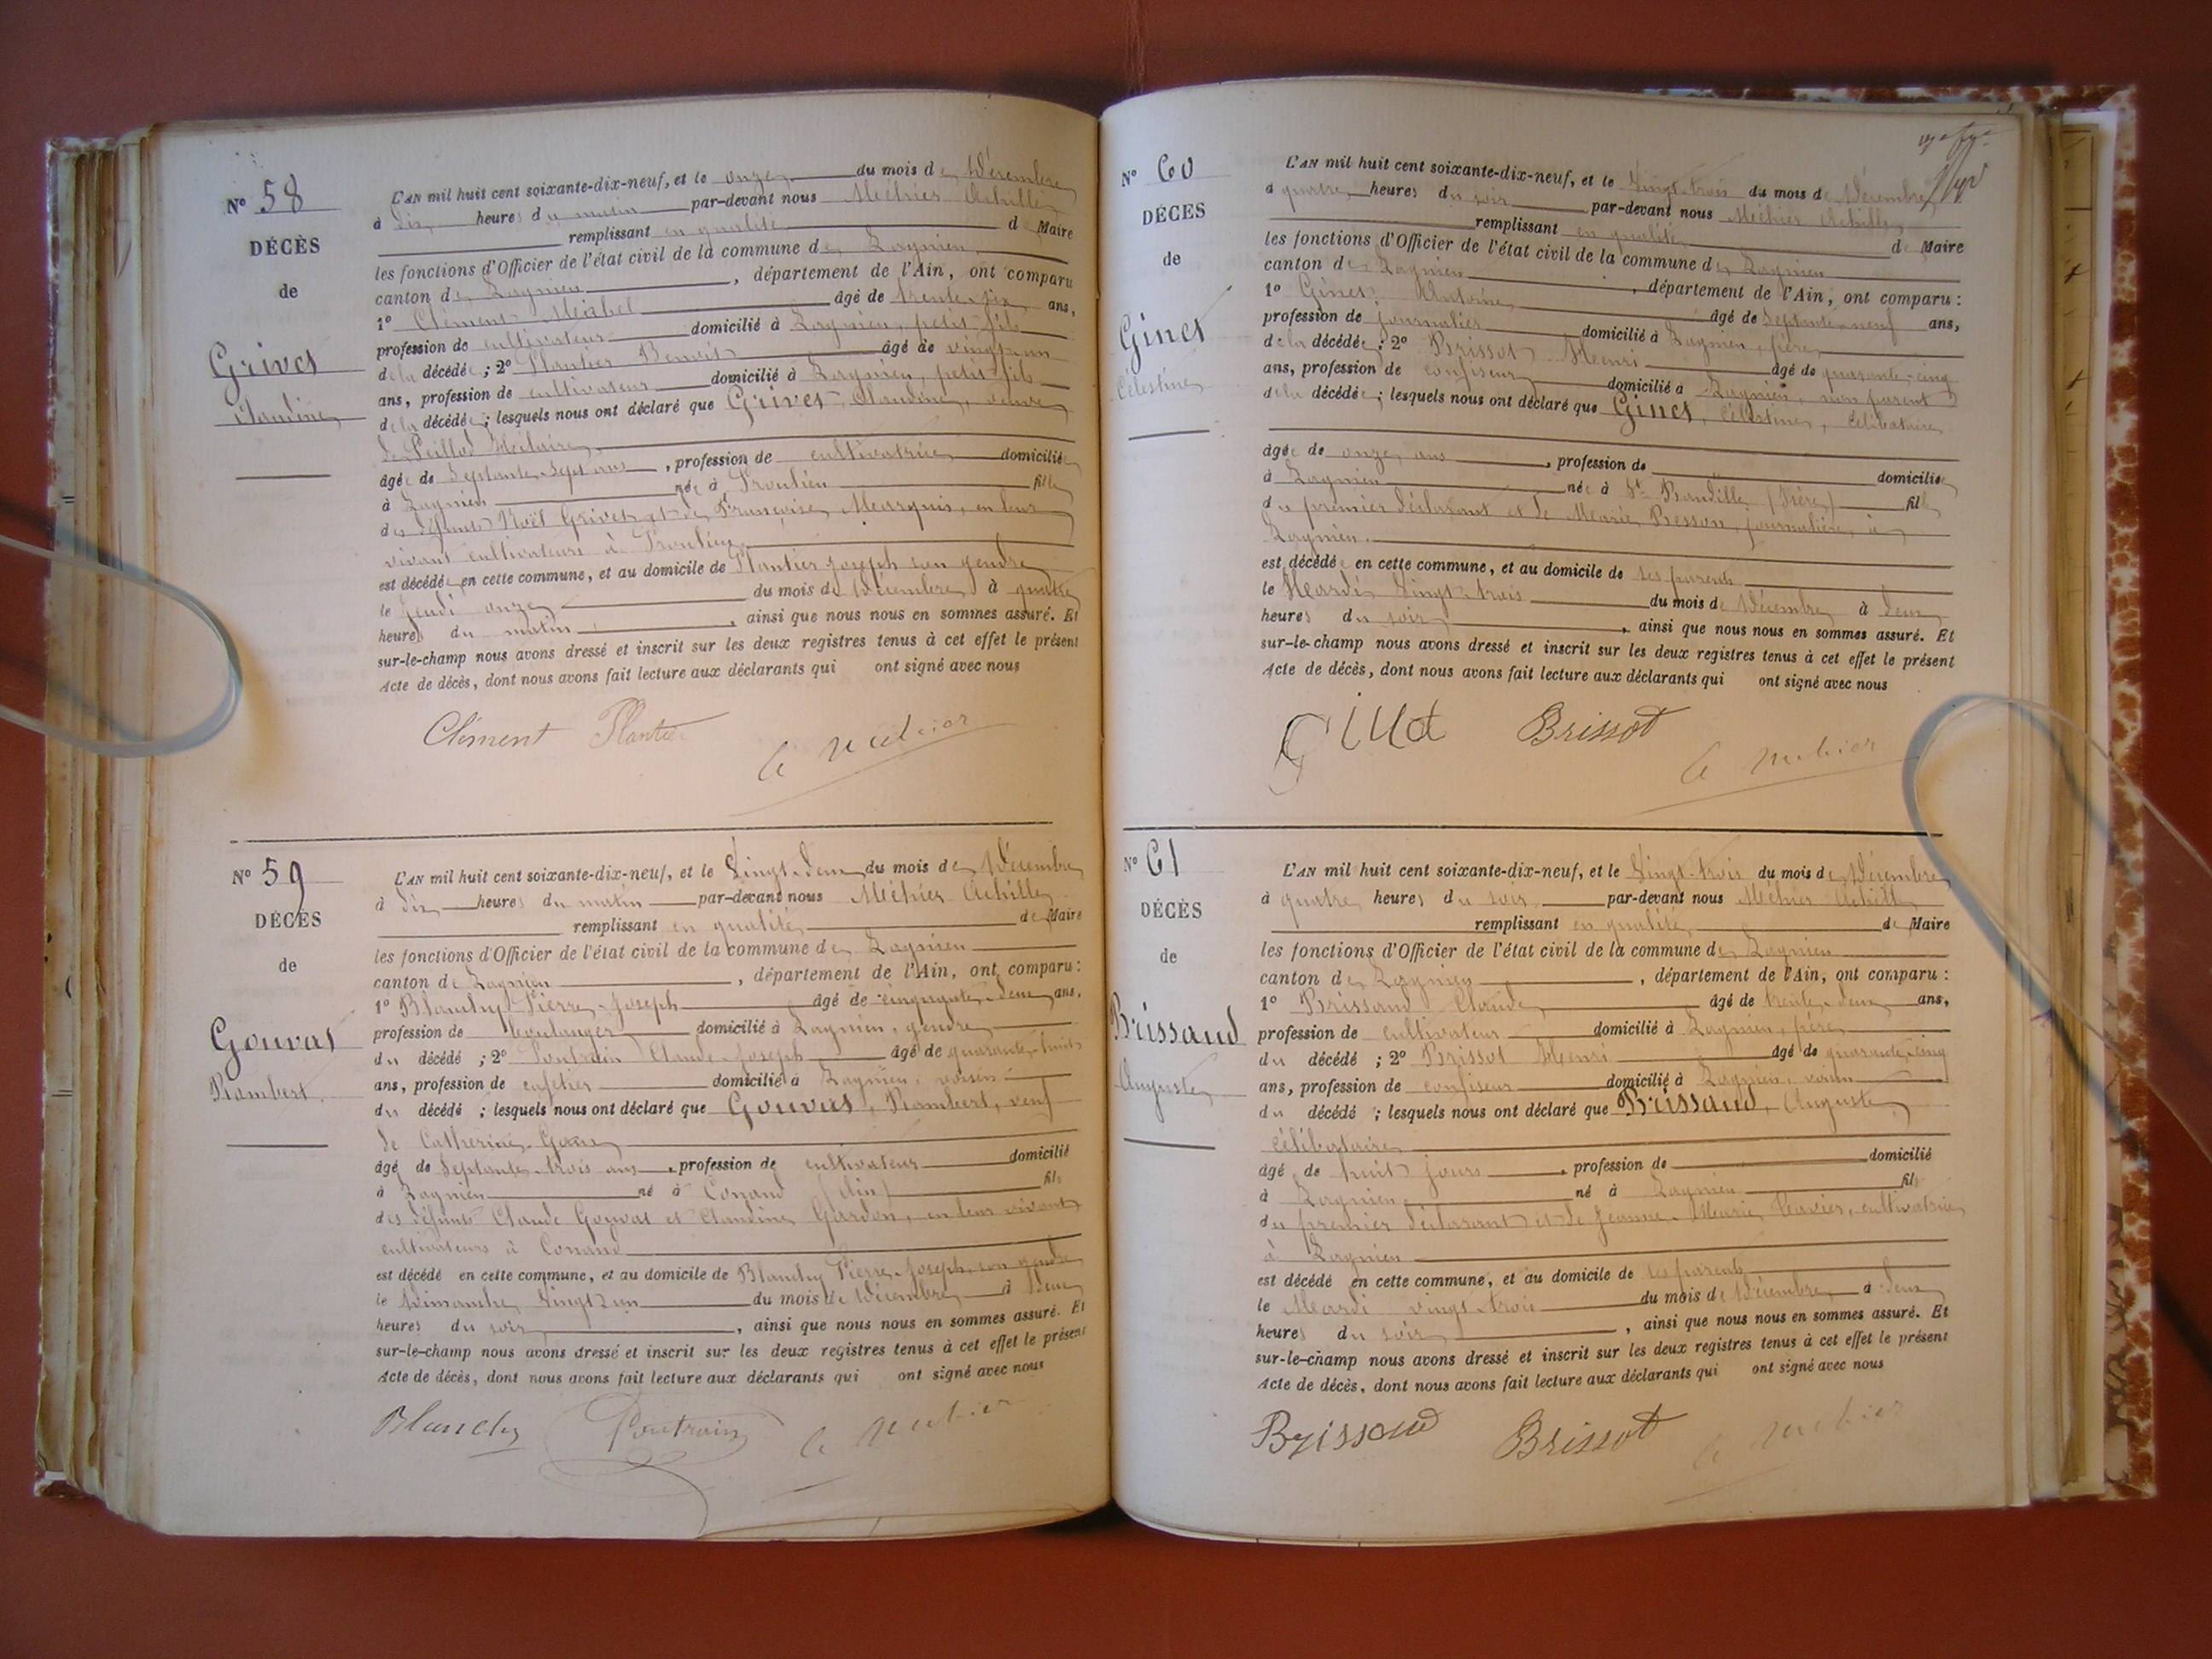 Nº 58
DÉCÈS
de
Grivet
Claudine
L'AN mil huit cent soixante-dix-neuf, et le onze du mois de Décembre
à dix heures du matin par-devant nous Méhier Achille
remplissant en qualité de Maire
les fonctions d'Officier de l'état civil de la commune de Lagnieu
canton de Lagnieu, département de l'Ain, ont comparu
1º Clément Michel âgé de trente-six ans,
profession de cultivateur domicilié à Lagnieu, petit-fils
de la décédée; 2º Plantier Benoit âgé de vingt-un
ans, profession de cultivateur domicilié à Lagnieu, petit-fils
de la décédée; lesquels nous ont déclaré que Grivet, Claudine, veuve
de Peillod Hilaire
âgée de septante-sept ans, profession de cultivatrice domiciliée
à Lagnieu née à Proulieu fille
des défunts Noël Grivet et de Françoise Marquis, en leur
vivant cultivateurs à Proulieu
est décédée en cette commune, et au domicile de Plantier Joseph son gendre
le Jeudi onze du mois de Décembre à quatre
heures du matin, ainsi que nous nous en sommes assuré. Et
sur-le-champ nous avons dressé et inscrit sur les deux registres tenus à cet effet le présent
Acte de décès, dont nous avons fait lecture aux déclarants qui ont signé avec nous
Clément Plantier
a Mehier
Nº 59
DÉCÈS
de
Gouvat
Rambert
L'AN mil huit cent soixante-dix-neuf, et le vingt-deux du mois de Décembre
à dix heures du matin par-devant nous Méhier Achille
remplissant en qualité de Maire
les fonctions d'Officier de l'état civil de la commune de Lagnieu
canton de Lagnieu, département de l'Ain, ont comparu:
1º Blanchy Pierre-Joseph âgé de cinquante-deux ans,
profession de boulanger domicilié à Lagnieu, gendre
du décédé; 2º Poutrain Claude-Joseph âgé de quarante-huit
ans, profession de cafetier domicilié à Lagnieu, voisin
du décédé; lesquels nous ont déclaré que Gouvat, Rambert, veuf
de Catherine
âgé de septante-trois ans, profession de cultivateur domicilié
à Lagnieu né à Conand (Ain) fils
des défunts Claude Gouvat et Claudine Gardon, en leur vivant
cultivateurs à Conand
est décédé en cette commune, et au domicile de Blanchy Pierre-Joseph, son gendre
le Dimanche vingt un du mois de Décembre à deux
heures du soir, ainsi que nous nous en sommes assuré. Et
sur-le-champ nous avons dressé et inscrit sur les deux registres tenus à cet effet le présent
Acte de décès, dont nous avons fait lecture aux déclarants qui ont signé avec nous
Blanchy Poutrain a Mehier
Nº 60
DÉCÈS
de
Ginet
Célestine
L'AN mil huit cent soixante-dix-neuf, et le vingt-trois du mois de Décembre
à quatre heures du soir par-devant nous Méhier Achille
remplissant en qualité de Maire
les fonctions d'Officier de l'état civil de la commune de Lagnieu
canton de Lagnieu, département de l'Ain, ont comparu:
1º Ginet Antoine âgé de septante-neuf ans,
profession de journalier domicilié à Lagnieu, père
de la décédée; 2º Brissot Henri âgé de quarante-cinq
ans, profession de confiseur domicilié à Lagnieu, non parent
de la décédée; lesquels nous ont déclaré que Ginet, Célestine, célibataire
âgée de onze ans, profession de domiciliée
à Lagnieu née à St Baudille (Isère) fille
du premier déclarant et de Marie Besson, journalière, à
Lagnieu.
est décédée en cette commune, et au domicile de ses parents
le Mardi vingt-trois du mois de Décembre à deux
heures du soir, ainsi que nous nous en sommes assuré. Et
sur-le-champ nous avons dressé et inscrit sur les deux registres tenus à cet effet le présent
Acte de décès, dont nous avons fait lecture aux déclarants qui ont signé avec nous
Ginet Brissot
a Mehier
Nº 61
DÉCÈS
de
Brissaud
Auguste
L'AN mil huit cent soixante-dix-neuf, et le vingt-trois du mois de Décembre
à quatre heures du soir par-devant nous Méhier Achille
remplissant en qualité de Maire
les fonctions d'Officier de l'état civil de la commune de Lagnieu
canton de Lagnieu, département de l'Ain, ont comparu:
1º Brissaud Claude âgé de trente-deux ans,
profession de cultivateur domicilié à Lagnieu, père
du décédé; 2º Brissot Henri âgé de quarante-cinq
ans, profession de confiseur domicilié à Lagnieu, voisin
du décédé; lesquels nous ont déclaré que Brissaud, Auguste,
célibataire
âgé de huit jours, profession de domicilié
à Lagnieu né à Lagnieu fils
du premier déclarant et de Jeanne-Marie, cultivatrice
à Lagnieu
est décédé en cette commune, et au domicile de ses parents
le Mardi vingt-trois du mois de Décembre à deux
heures du soir, ainsi que nous nous en sommes assuré. Et
sur-le-champ nous avons dressé et inscrit sur les deux registres tenus à cet effet le présent
Acte de décès, dont nous avons fait lecture aux déclarants qui ont signé avec nous
Brissaud Brissot a Mehier